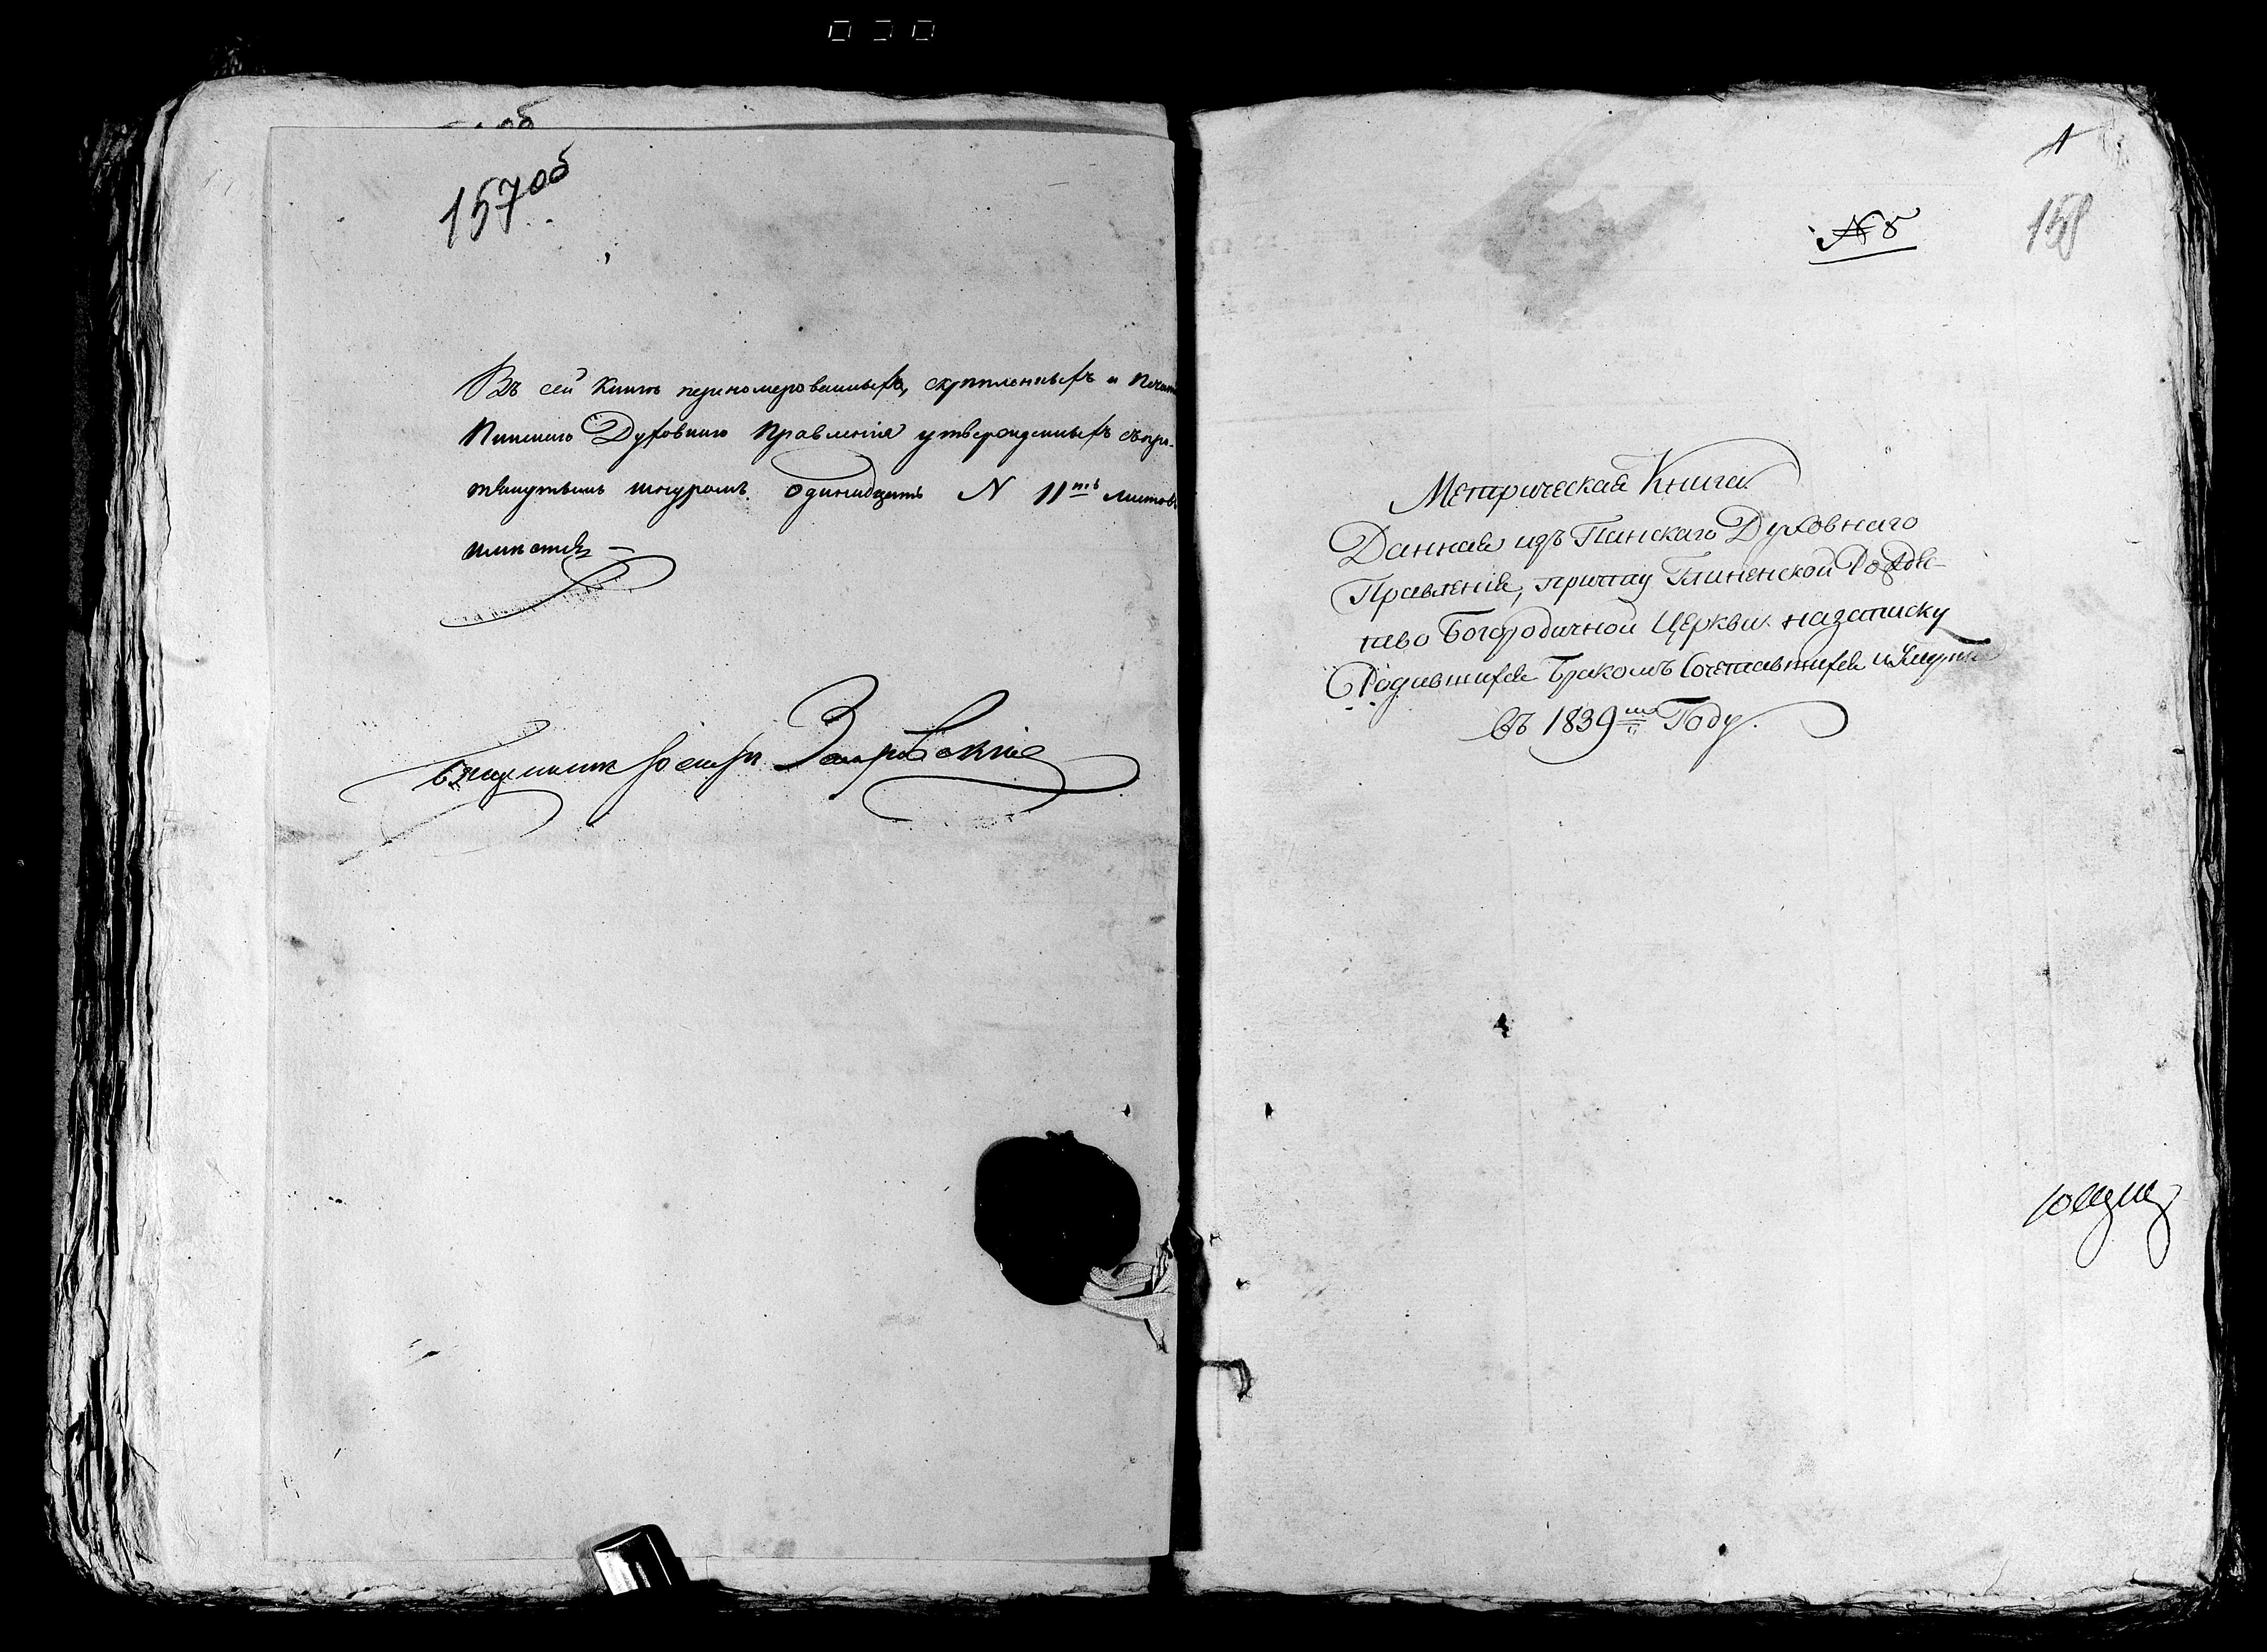 157об
Въ сей Книге перономерованныхъ, скрепленныхъ и Печат
Пинского Духовного Правления утвержденныхъ съпро-
тянутымъ шнуромъ одинадцать N 11ть листовъ
Иосифъ
1
158
№ 8
Метрическая Книга
Данная изъ Пинскаго Духовнаго
Правленія, причту Глиненской Рожде-
ство Богородичной Церкви на записку
Родившихся Бракомъ Сочетавшихся и Умерш
въ 1839мъ Году.